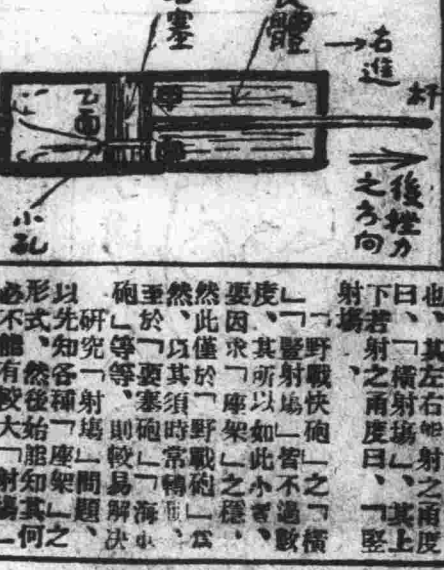 塞
體
右進
杆
乙面
甲
小孔
後挫力
之方向
也、其左右能射之角度
曰、「橫射塲」、其上
下若射之角度曰、「竪
射塲、
「野戰快砲」之「橫
」「竪射塲」皆不過數
度、其所以如此小者、
要因求「座架」之穩、
然此僅於「野戰砲」爲
然、以其須時常轉、
至於「要塞砲」「海
砲」等等、則較易解决
研究「射塲」問題、
以先知各種「座架」之
形式、然後始能知其何
必不能有較大「射塲」